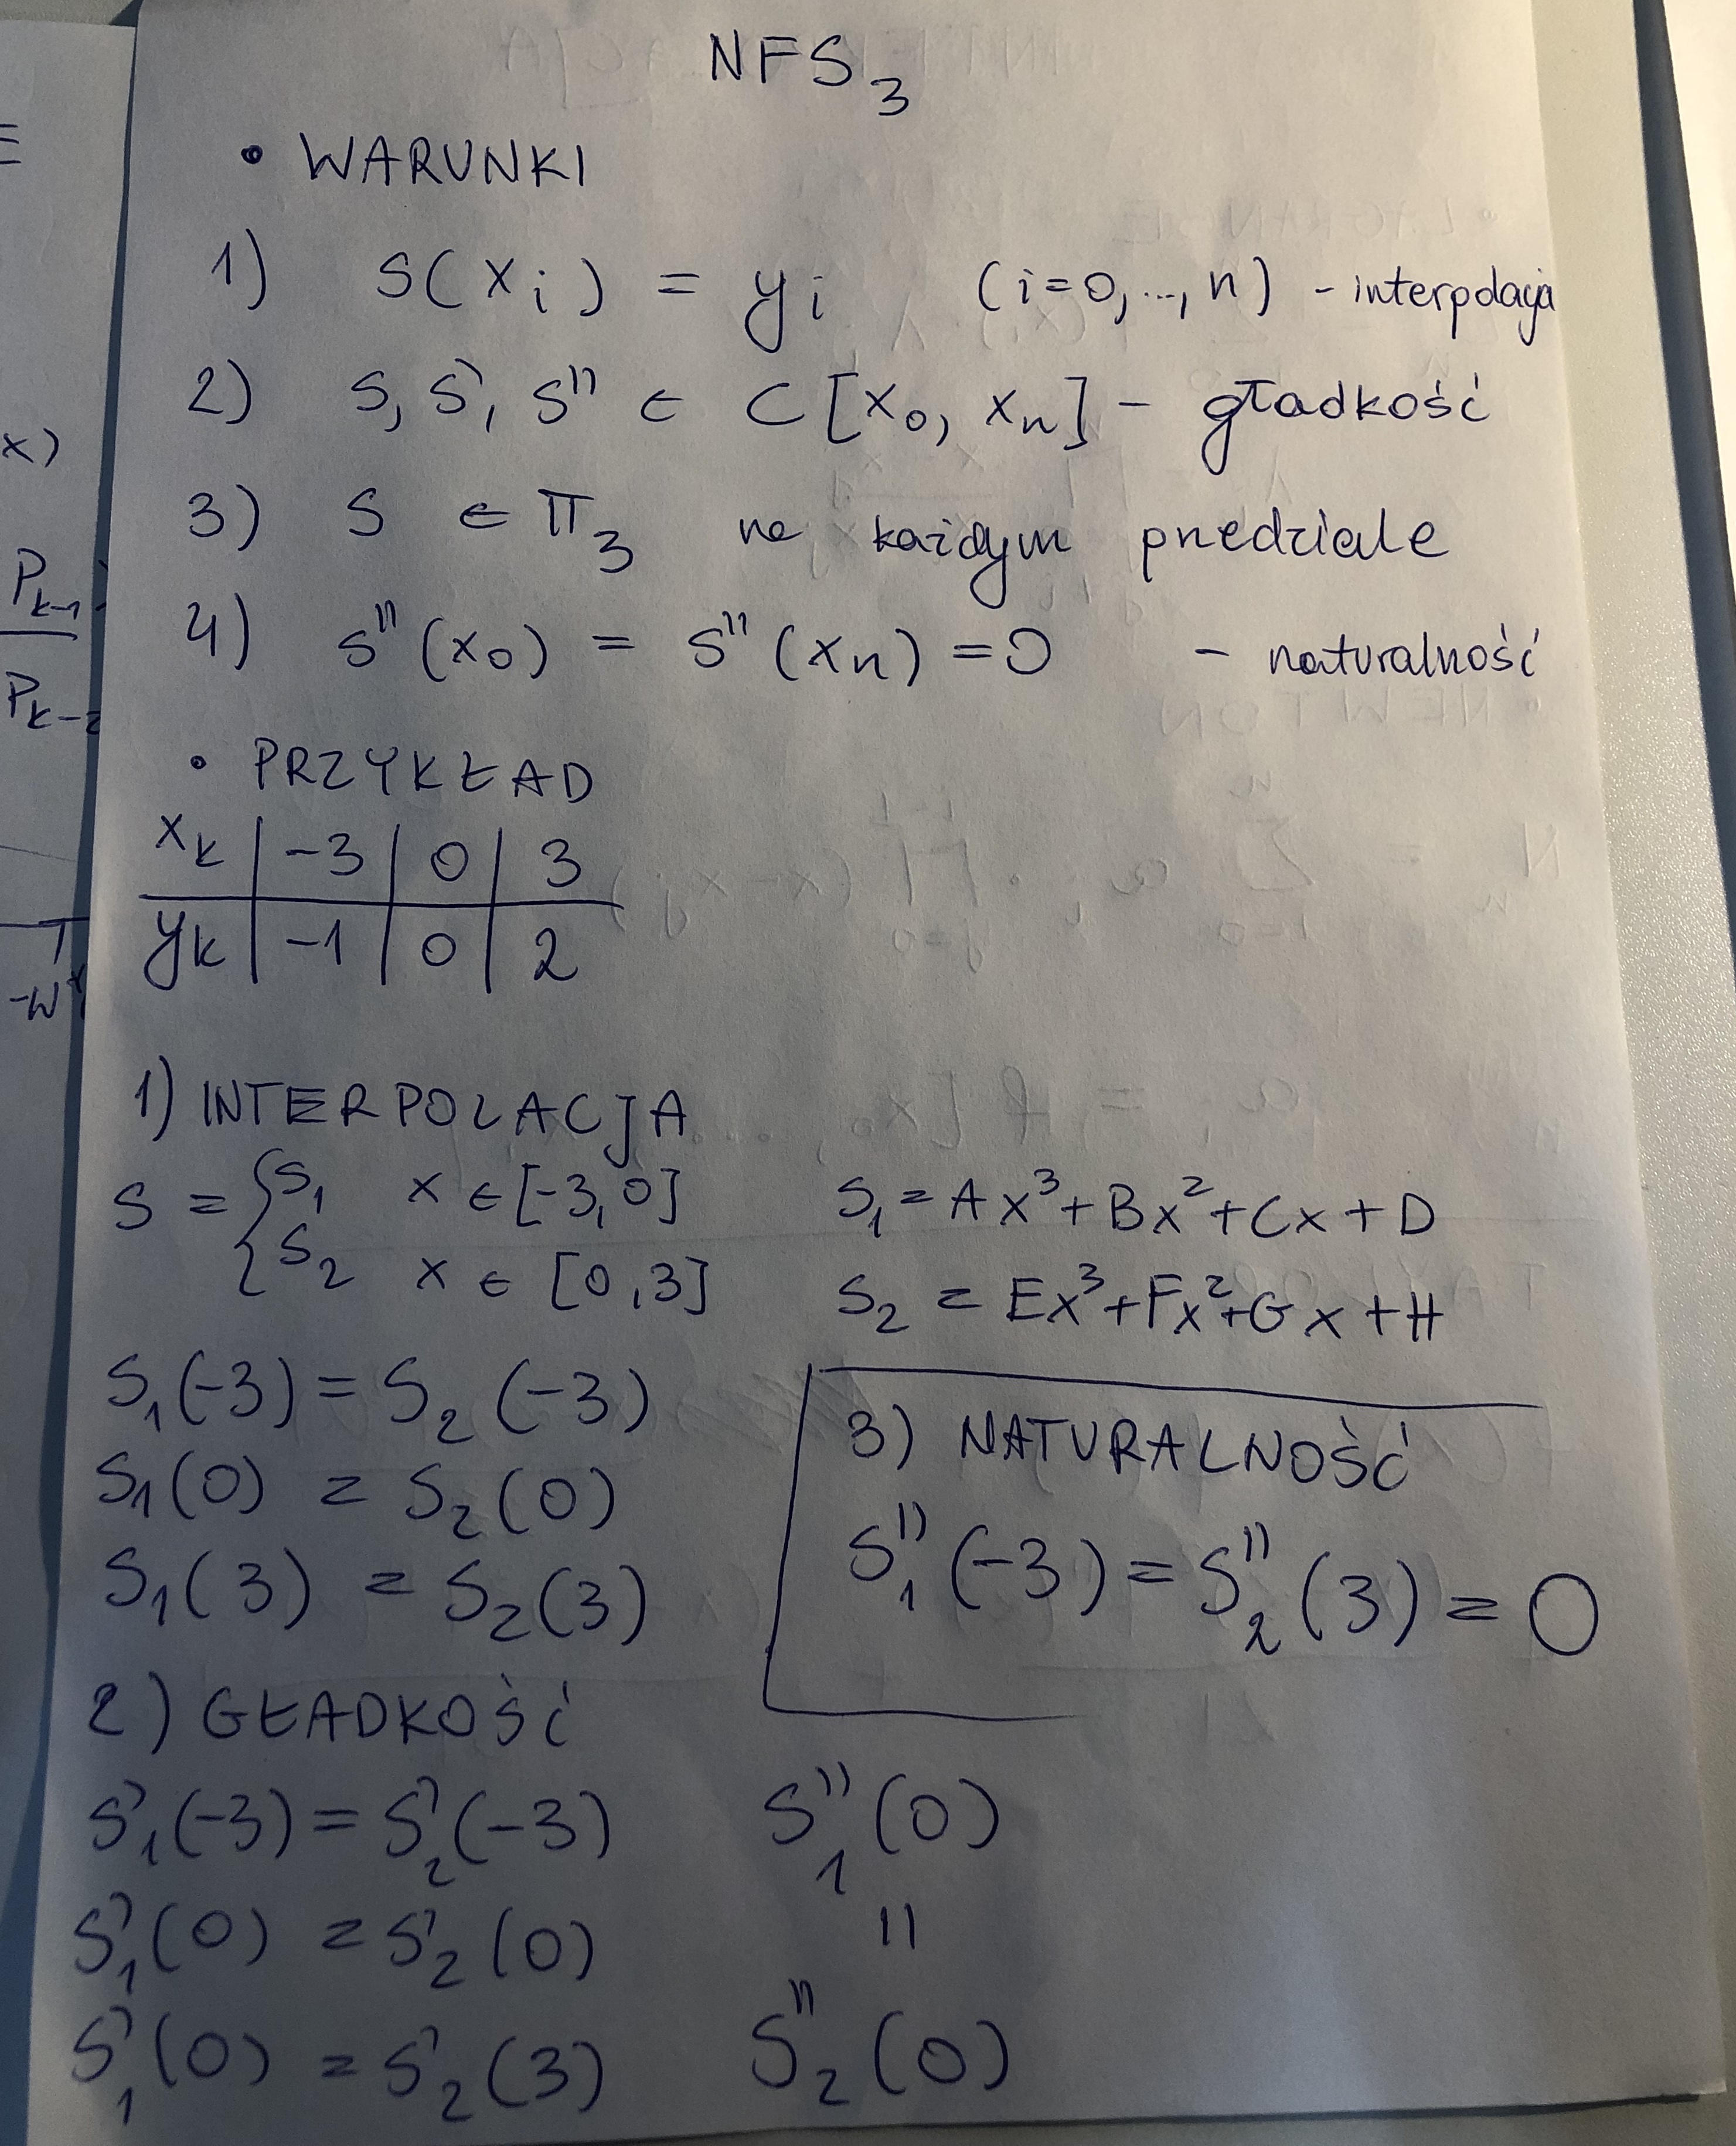 NFS₃
• WARUNKI
1) S(xi) = yi (i=0,..., n) - interpolacja
2) S, S', S'' ∈ C[x₀, xn] - gładkość
3) S ∈ Π₃ na każdym przedziale
4) S''(x₀) = S''(xn) = 0 - naturalność
• PRZYKŁAD
xk | -3 | 0 | 3
yk | -1 | 0 | 2
1) INTERPOLACJA
S = { S₁ x ∈ [-3,0] S₁ = Ax³+Bx²+Cx+D
{ S₂ x ∈ [0,3] S₂ = Ex³+Fx²+Gx+H
S₁(-3) = S₂(-3)
S₁(0) = S₂(0)
S₁(3) = S₂(3)
3) NATURALNOŚĆ
S₁''(-3) = S₂''(3) = 0
2) GŁADKOŚĆ
S₁'(-3) = S₂'(-3)
S₁'(0) = S₂'(0)
S₁'(0) = S₂'(3)
S₁''(0)
=
S₂''(0)
x)
Pk-1
Pk-2